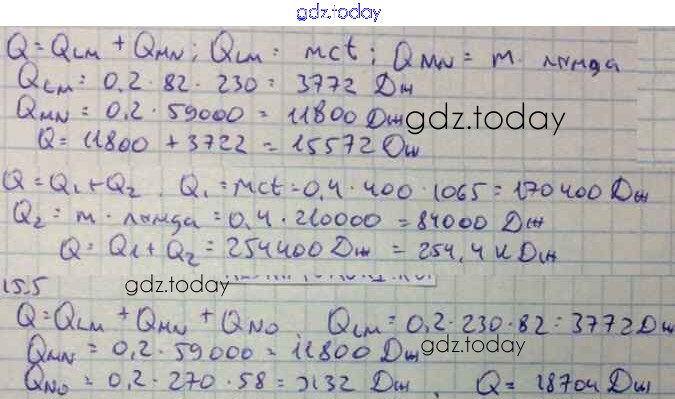 gdz.today
Q = QLM + QMN; QLM = mct; QMN = m · лямда
QLM = 0,2 · 82 · 230 = 3772 Дж
QMN = 0,2 · 59000 = 11800 Дж gdz.today
Q = 11800 + 3722 = 15572 Дж
Q = Q1 + Q2. Q1 = mct = 0,4 · 400 · 1065 = 170400 Дж
Q2 = m · лямда = 0,4 · 210000 = 84000 Дж
Q = Q1 + Q2 = 254400 Дж = 254,4 кДж
15.5 gdz.today
Q = QLM + QMN + QNO QLM = 0,2 · 230 · 82 = 3772 Дж
QMN = 0,2 · 59000 = 11800 Дж gdz.today
QNO = 0,2 · 270 · 58 = 3132 Дж. Q = 18704 Дж